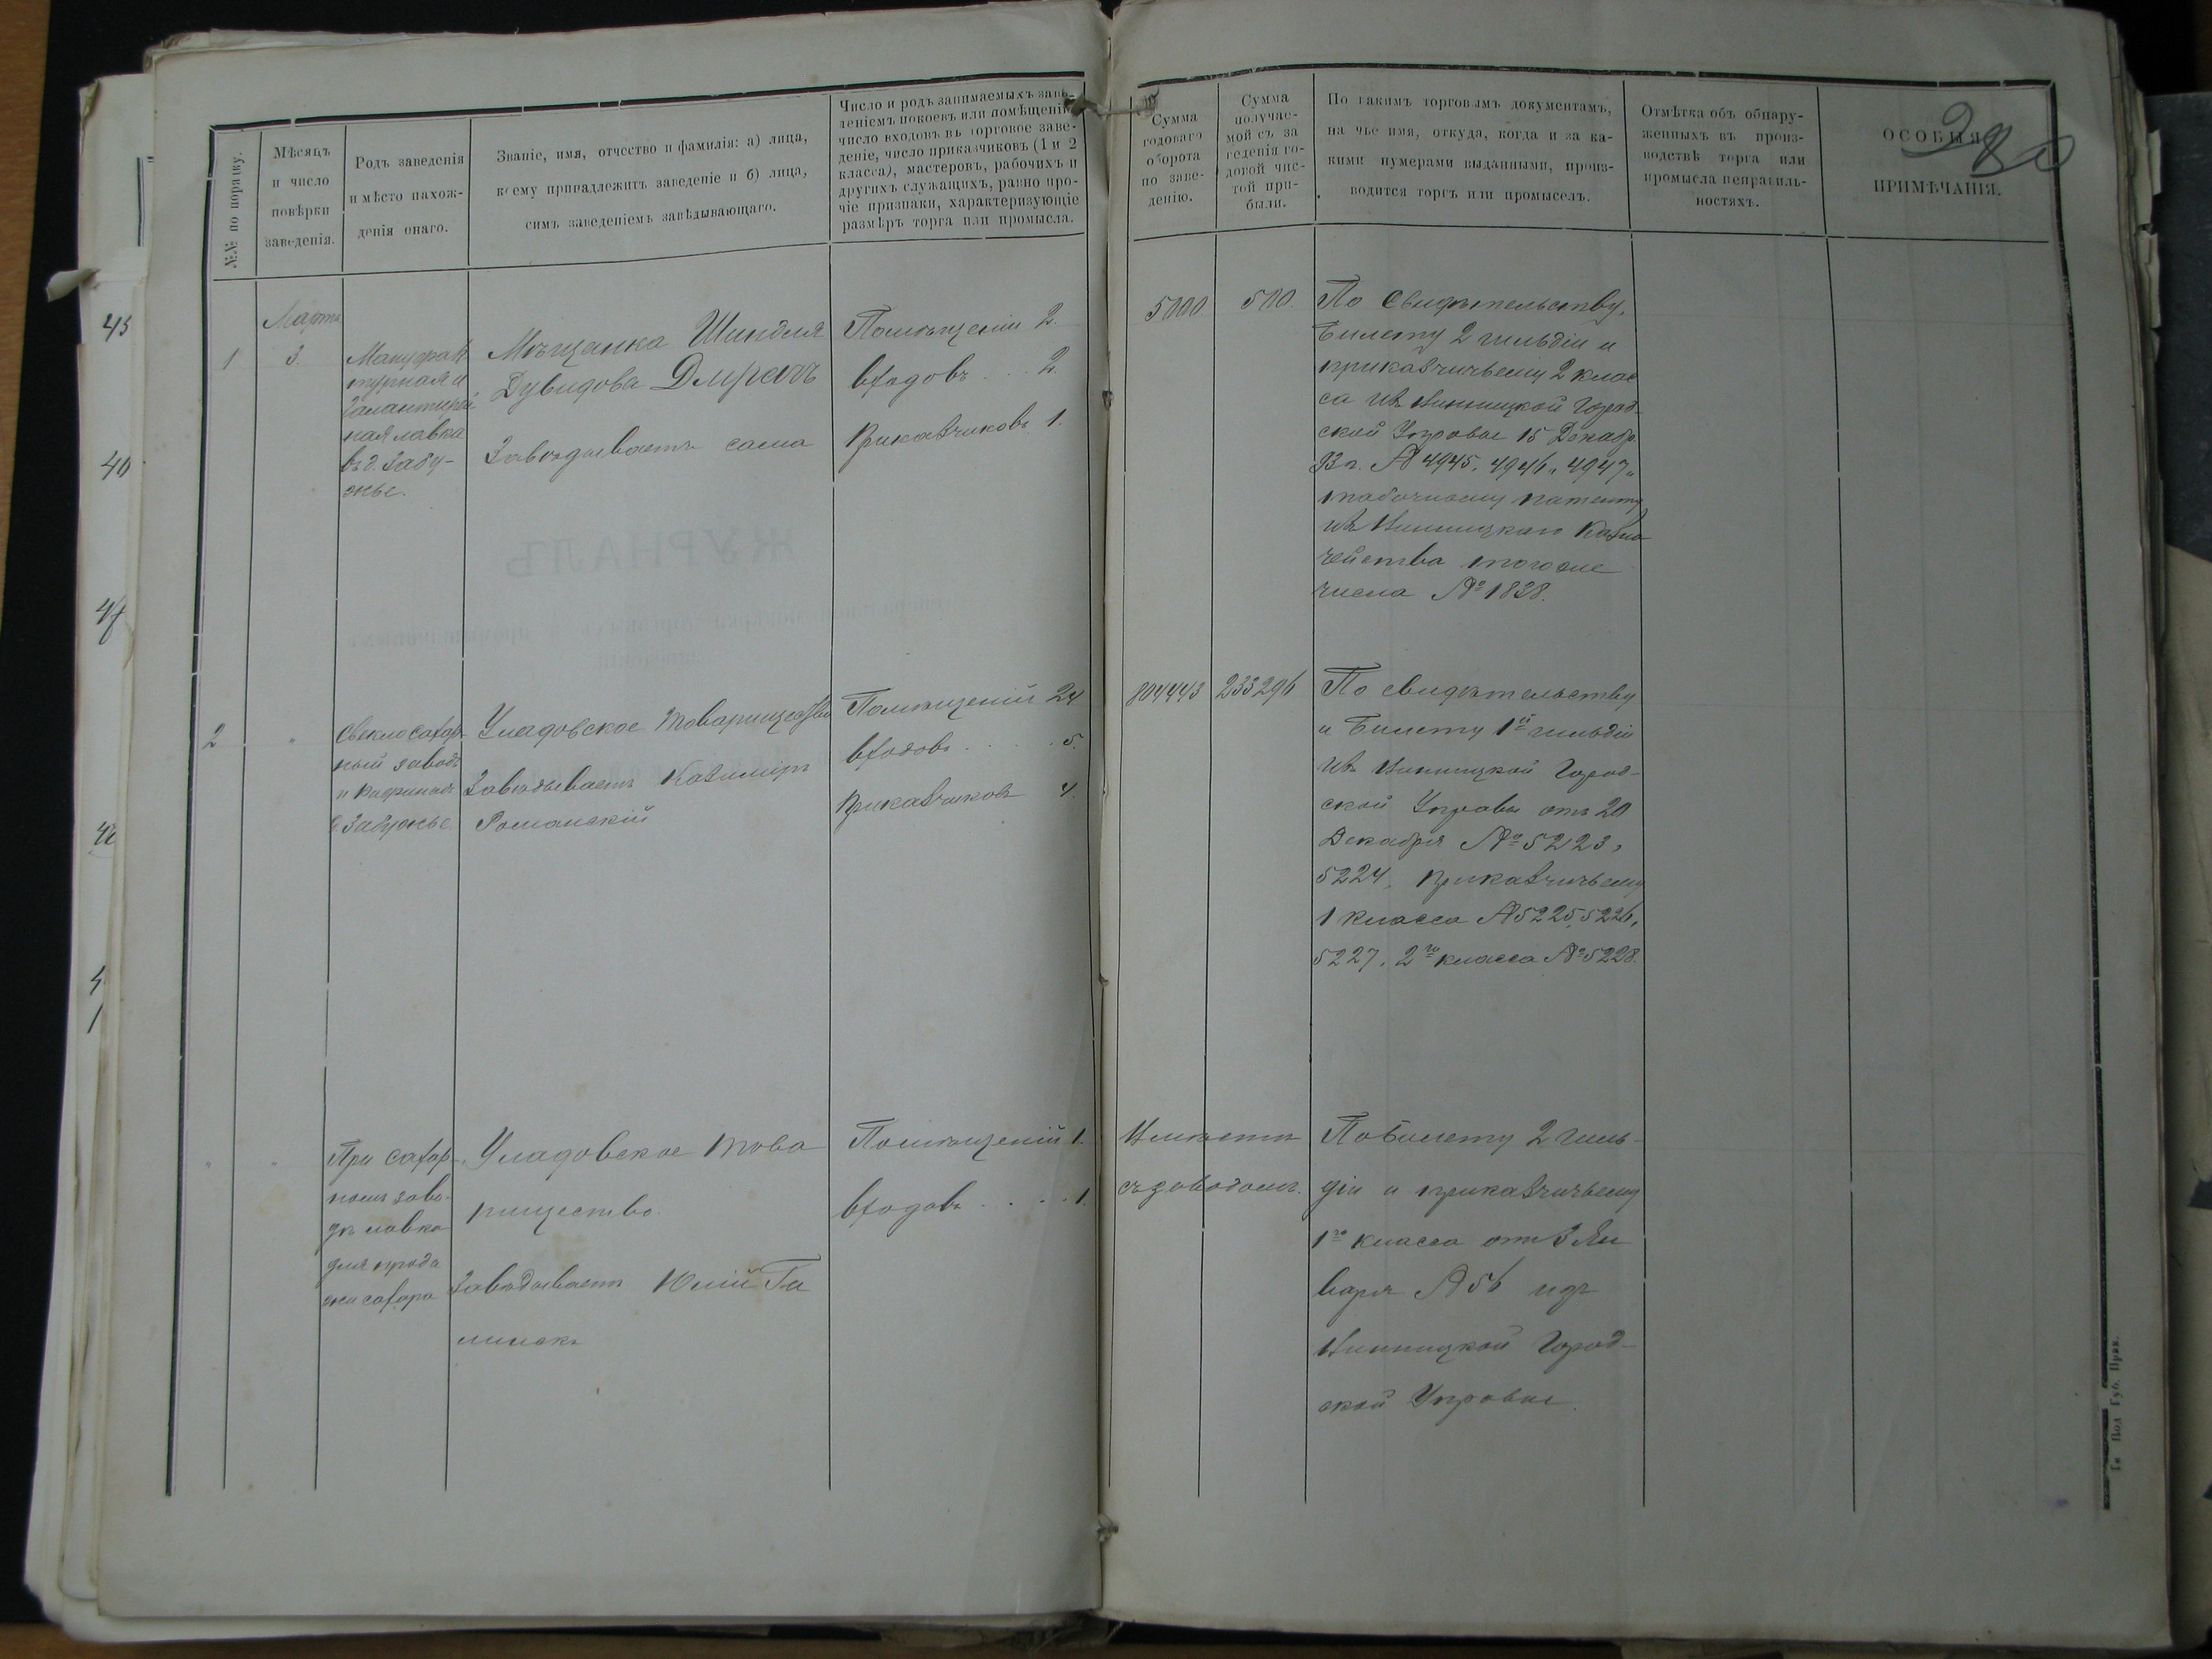 №№ по порядку.
Мѣсяцъ
и число
повѣрки
заведенія.
Родъ заведенія
и мѣсто нахож-
денія онаго.
Званіе, имя, отчество и фамилія: а) лица,
коему принадлежитъ заведеніе и б) лица,
симъ заведеніемъ завѣдывающаго.
Число и родъ занимаемыхъ заве-
деніемъ покоевъ или помѣщеній
число входовъ въ торговое заве-
деніе, число приказчиковъ (1 и 2
класса), мастеровъ, рабочихъ и
другихъ служащихъ, равно про-
чіе признаки, характеризующіе
размѣръ торга или промысла.
Сумма
годоваго
оборота
по заве-
денію.
Сумма
получае-
мой съ за
веденія го-
довой чис-
той при-
были.
По какимъ торговымъ документамъ,
на чье имя, откуда, когда и за ка-
кими нумерами выданными, произ-
водится торгъ или промыселъ.
Отмѣтка объ обнару-
женныхъ въ произ-
водствѣ торга или
промысла неправиль-
ностяхъ.
ОСОБЫЯ
ПРИМѢЧАНІЯ.
280
1
Марта
3.
Мануфак
турная и
Галантерей
ная лавка
въ д. Забу-
жье.
Мѣщанка Шиндля
Дувидова
Завѣдываетъ сама
Помѣщеній 2.
входовъ . . 2.
Приказчиковъ 1.
5000.
500.
По свидѣтельству,
билету 2 гильдіи и
приказчичьему 2 клас
са изъ Винницкой Город-
ской Управы 15 Декабр.
93 г. № 4945, 4946, 4947,
табачному патенту
изъ Винницкаго Казна
чейства того же
числа № 1838.
2
"
Свеклосахар-
ный заводъ
и Рафинадъ
с. Забужье.
Уладовское товарищество
Завѣдываетъ Казимиръ
Романскій
Помѣщеній 24
входовъ . . . . 5.
Приказчиковъ 4.
804443
233296
По свидѣтельству
и билету 1й гильдіи
изъ Винницкой Город-
ской Управы отъ 20
Декабря № 5223,
5224, приказчичьему
1 класса № 5225, 5226,
5227, 2го класса № 5228.
"
"
При сахар-
номъ заво-
дѣ лавка
для прода
жи сахара
Уладовское това
рищество.
Завѣдываетъ Юлій Га
Помѣщеній 1.
входовъ . . . . 1.
Имѣетъ
съ заводомъ.
По билету 2 гиль-
діи и приказчичьему
1го класса отъ 3 Ян
варя № 56 изъ
Винницкой Город-
ской Управы.
Ти Под Губ. Прав.
45
40
47